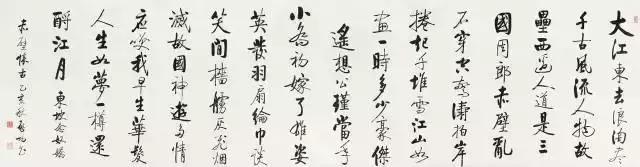 大江東去浪淘尽
千古風流人物故
壘西邊人道是三
國周郎赤壁亂
石穿空驚濤拍岸
捲起千堆雪江山如
畫一時多少豪傑
遙想公瑾當年
小喬初嫁了雄姿
英發羽扇綸巾談
笑間檣艣灰飛煙
滅故國神遊多情
應笑我早生華髮
人生如夢一樽還
酹江月 東坡念奴嬌
赤壁懷古 乙亥秋